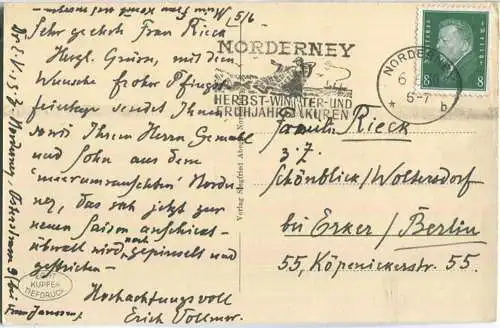 5/6
Sehr geehrte Frau Rieck
Herzl. Grüsse, mit dem
Wunsche froher Pfingst-
feiertage sendet Ihnen
sowie Ihrem Herrn Gemahl
und Sohn aus dem
"meerumrauschten" Norder-
ney, das sich jetzt zur
neuen Saison anschickt
überall wird noch gepinselt und
gestrichen.
Hochachtungsvoll
Erich Vollmer.
KUPFER
TIEFDRUCK
Verlag Siegfried
NORDERNEY
HERBST-WINTER-UND
FRÜHJAHRSKUREN
NORDERNEY
6
6-7
* b
8 8
Familie Rieck
z. Z.
Schönblick/Woltersdorf
bei Erker/Berlin
55, Köpenickerstr. 55.